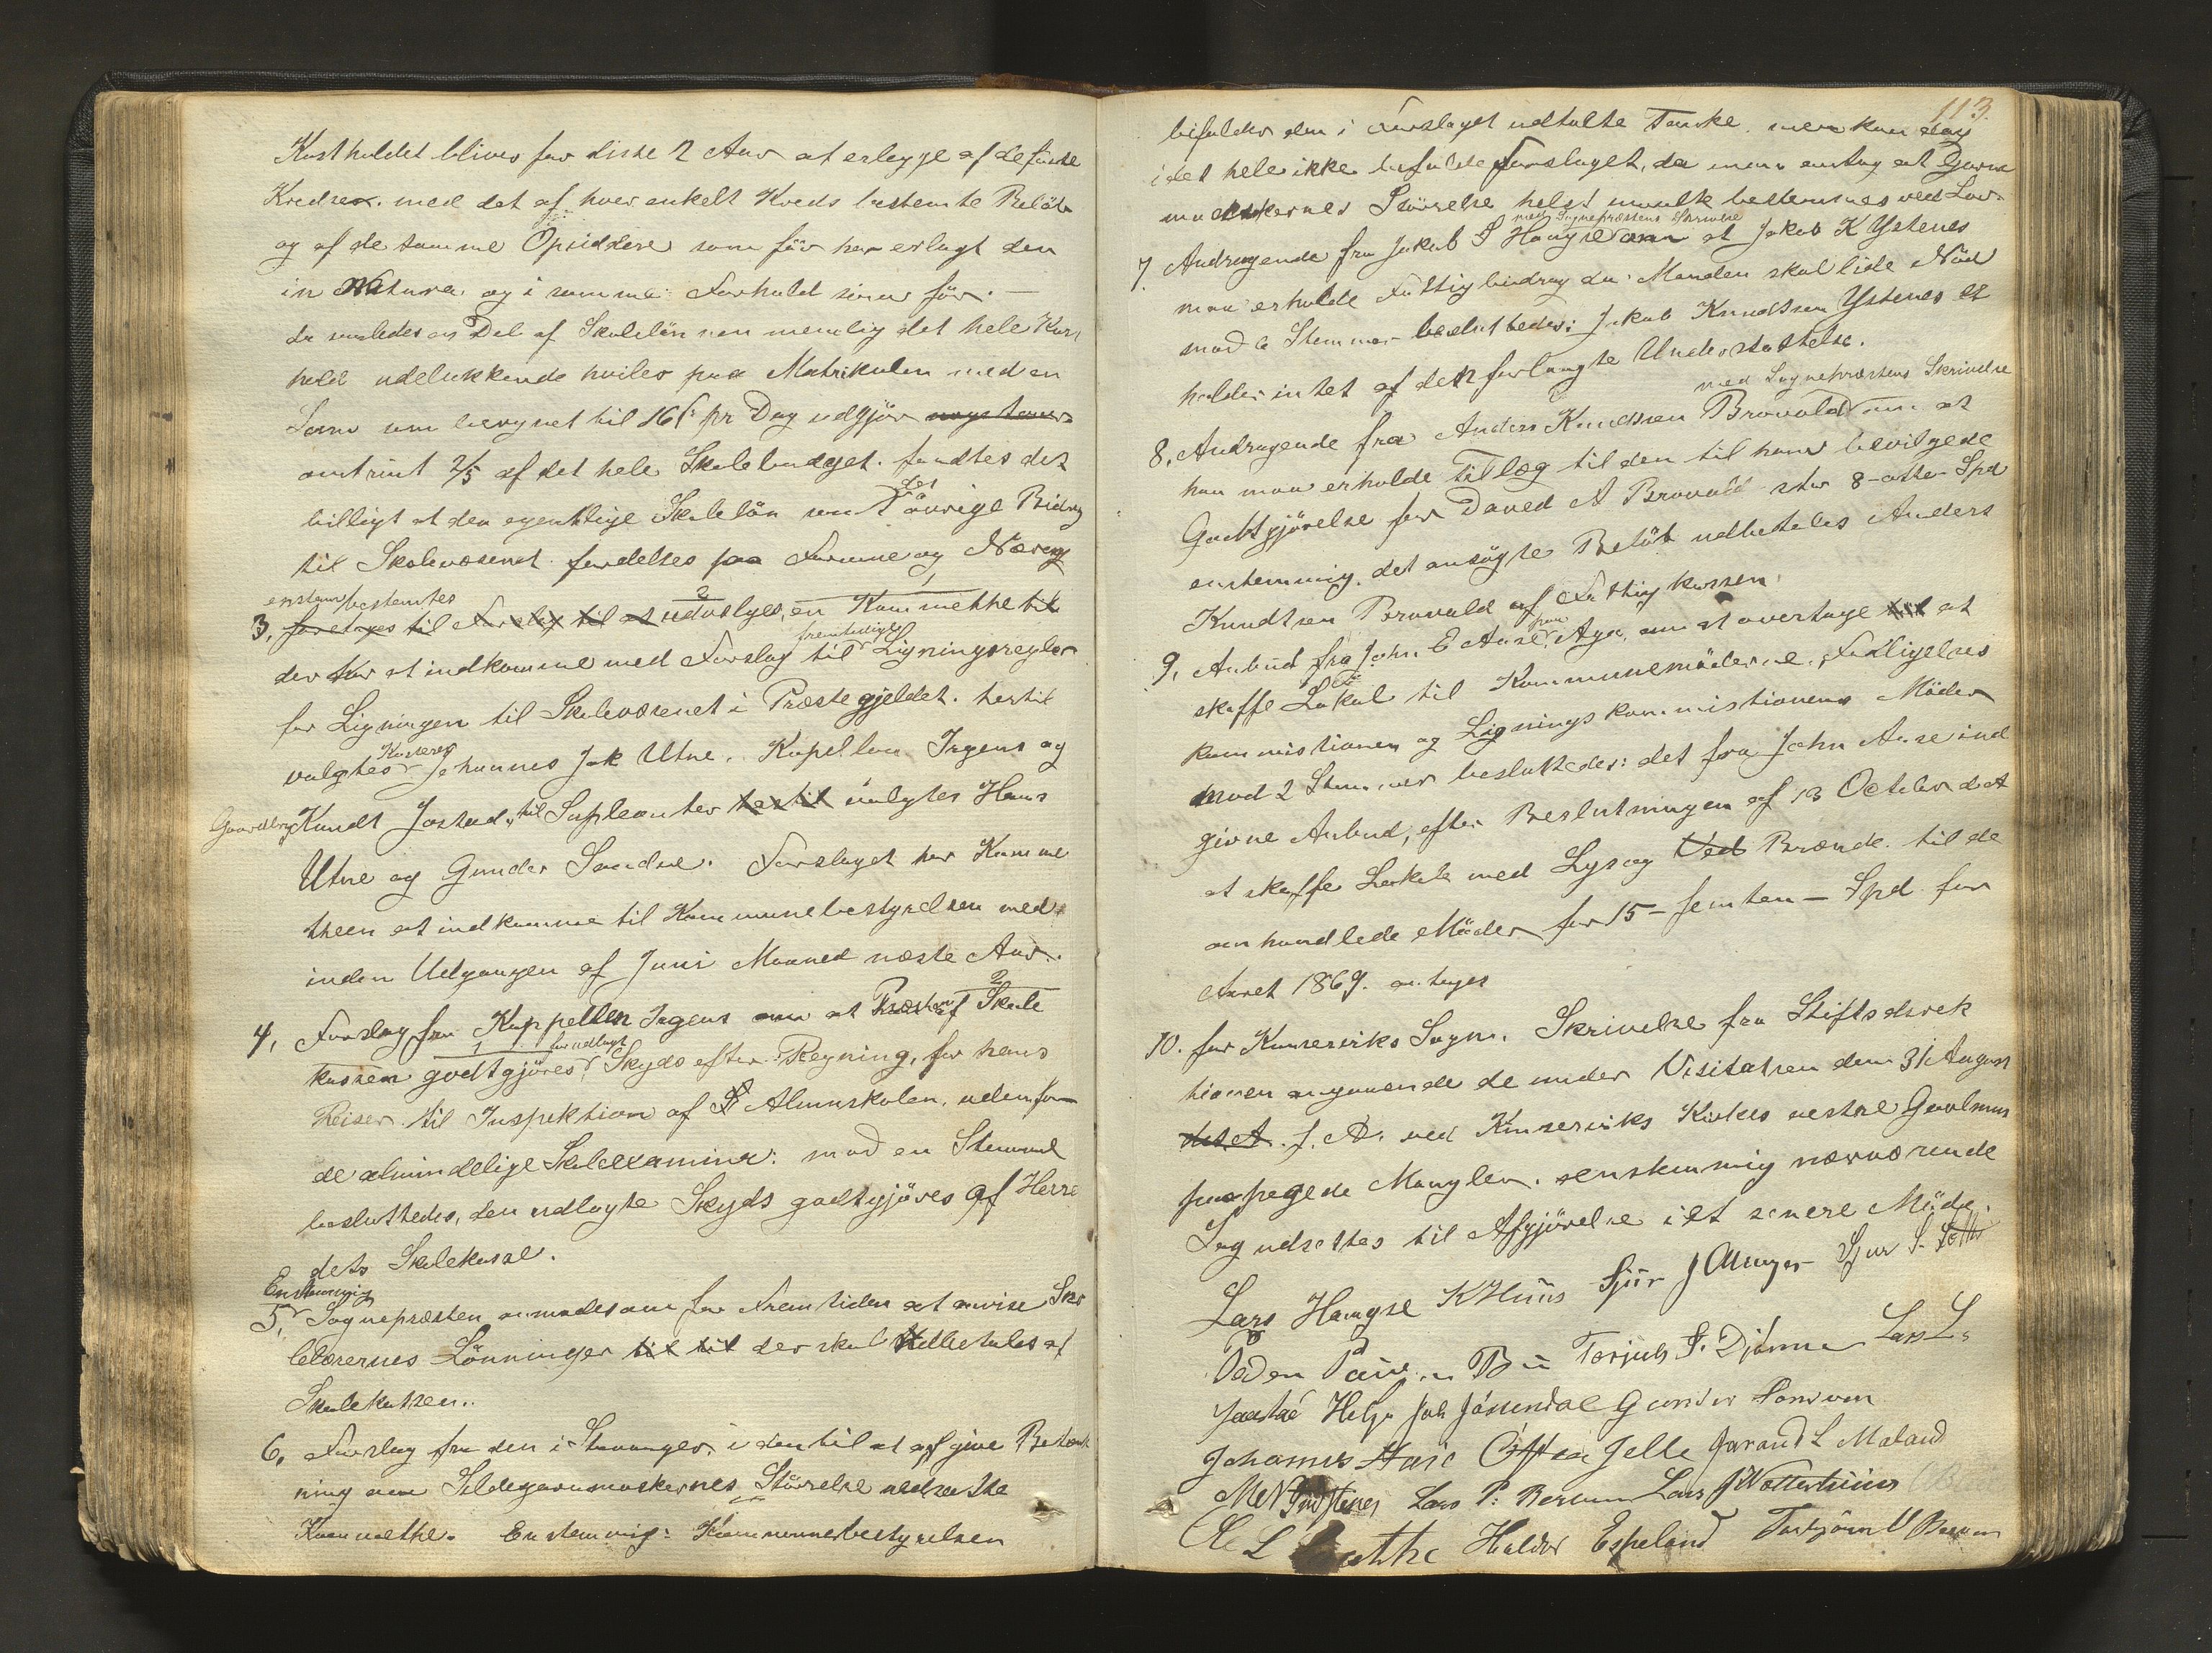 Kostholdet blives for disse 2 Aar at erlegge af de faste
Kredser. med det af hver enkelt Kreds bestemte Beløb
og af de samme Opsiddere som før har erlagt den
in Natura. og i samme Forhold som før. —
da saaledes en Del af Skolelönnen nemlig det hele Kost
hold udelukkende hviler paa Matrikulen med en
Sum som beregnet til 16 s pr Dag udgjør
omtrent 2/5 af det hele Skolebudget. fandtes det
billigt at den egentlige Skolelön samt det övrige Bidrag
til Skolevæsenet fordeltes paa Formue og Næring
enstem. bestemtes
3, foretages til Forslag til at udvælges, en Kommitthe til
der har at indkomme med Forslag til fremtidige Ligningsregler
for Ligningen til Skolevæsenet i Præstegjeldet. hertil
valgtes Kasserer Johannes Jak Utne. Kapellan Irgens og
Gaardbr Knudt Jostad, til Supleanter hertil valgtes Hans
Utne og Gunder Sandve. Forslaget har Komme
theen at indkomme til Kommunebestyrelsen med
inden Udgangen af Juni Maaned næste Aar.
4, Forslag fra Kappellan Irgens om at Præsten af Skole
kassen godtgjöres forudlagt Skyds efter Regning, for hans
Reiser til Inspektion af Almuskolen. udenfor
de almindelige Skoleexamina: mod en Stemme
besluttedes, den udlagte Skyds godtgjöres af Herre
dets Skolekasse.
Enstemmig
5, Sognepræsten anmodes om for Fremtiden at anvise Sko
lelærernes Lönninger til til der skal udbetales af
Skolekassen..
6, Forslag fra den i Stavanger i den til at afgive Betænk
ning om Sildegarnmaskernes Störrelse nedsatte
Kommitthe. Enstemmig: Kommunebestyrelsen
113.
bifalder den i Forslaget udtalte Tanke. men kan dog
i det hele ikke bifalde Forslaget, da man antog at Garn
maskernes Störrelse helst maatte bestemmes ved Lov.
med Sognepræstens Skrivelse
7. Andragende fra Jakob S Haugse om at Jakob K Ystenes
maa erholde Fattigbidrag da Manden skal lide Nöd
mod 2 Stemmer besluttedes: Jakob Knudtsen Ystenes er
holder intet af den forlangte Understøttelse.
med Sognepræstens Skrivelse
8. Andragende fra Anders Knudtsen Bravold om at
han maa erholde Tillæg til den til ham bevilgede
Godtgjörelse for Daved A Bravold stor 8-otte- Spd
enstemmig. det ansøgte Belöb udbetales Anders
Knudtsen Bravold af Fattigkassen.
9, Anbud fra John E Aase paa Aga, om at overtage til at
skaffe Lokal til Kommunemøderne. Forligelses
kommissionen og Ligningskommissionens Möder
mod 2 Stemmer besluttedes: det fra John Aase ind
givne Anbud, efter Beslutningen af 13 October d A
at skaffe Lokale med Lys og Ved Brænde. til de
omhandlede Möder for 15 – femten – Spd for
Aaret 1869. antages
10. for Kinserviks Sogn. Skrivelse fra Stiftsdirek
tionen angaaende de under Visitatsen den 31 August
d. A. f. A. ved Kinserviks Kirkes vestre Gavlmur
paapegede Mangler. enstemmig nærværende
Sag udsettes til Afgjörelse i et senere Möde.
Lars Haugse K Huus Sjur J Alsager Sjur S.
Peder Bu Torjuls S. Djönne Lars L.
Jaastad Helje Joh Jösendal Gunder Sandven
Johannes Aase Jelle Garand L Maland
Lars P. Berven Lars J Wottertuun
Haldor Espeland Torbjörn Berven